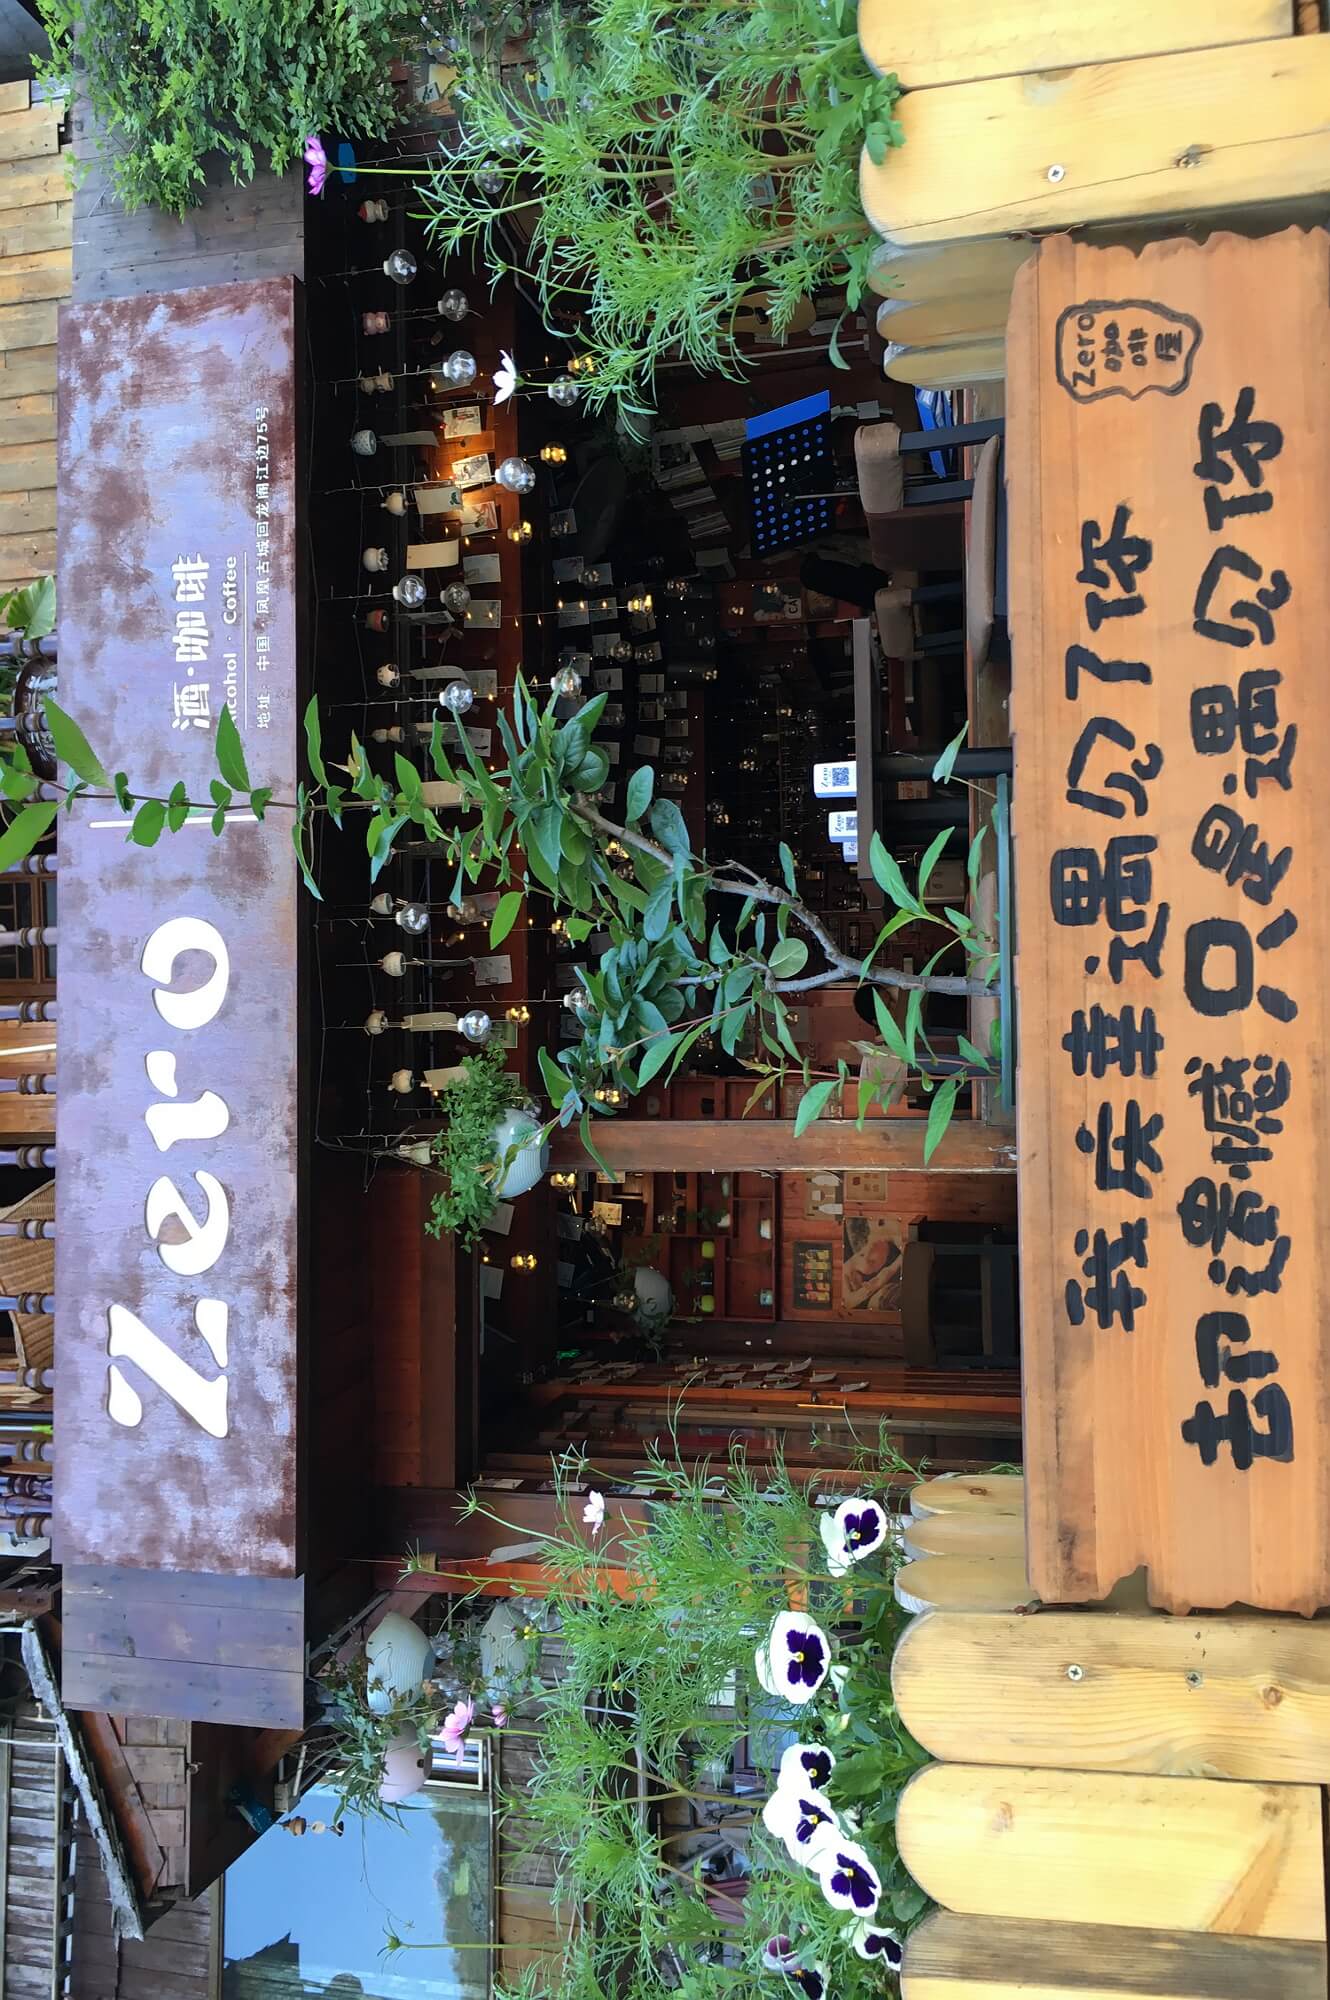 Zero
酒·咖啡
Alcohol · Coffee
地址：中国·凤凰古城回龙阁江边75号
Zero
咖啡屋
我庆幸遇见了你
却遗憾只是遇见你